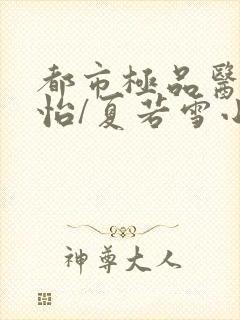 都市極品醫
怡/夏若雪小
神尊大人